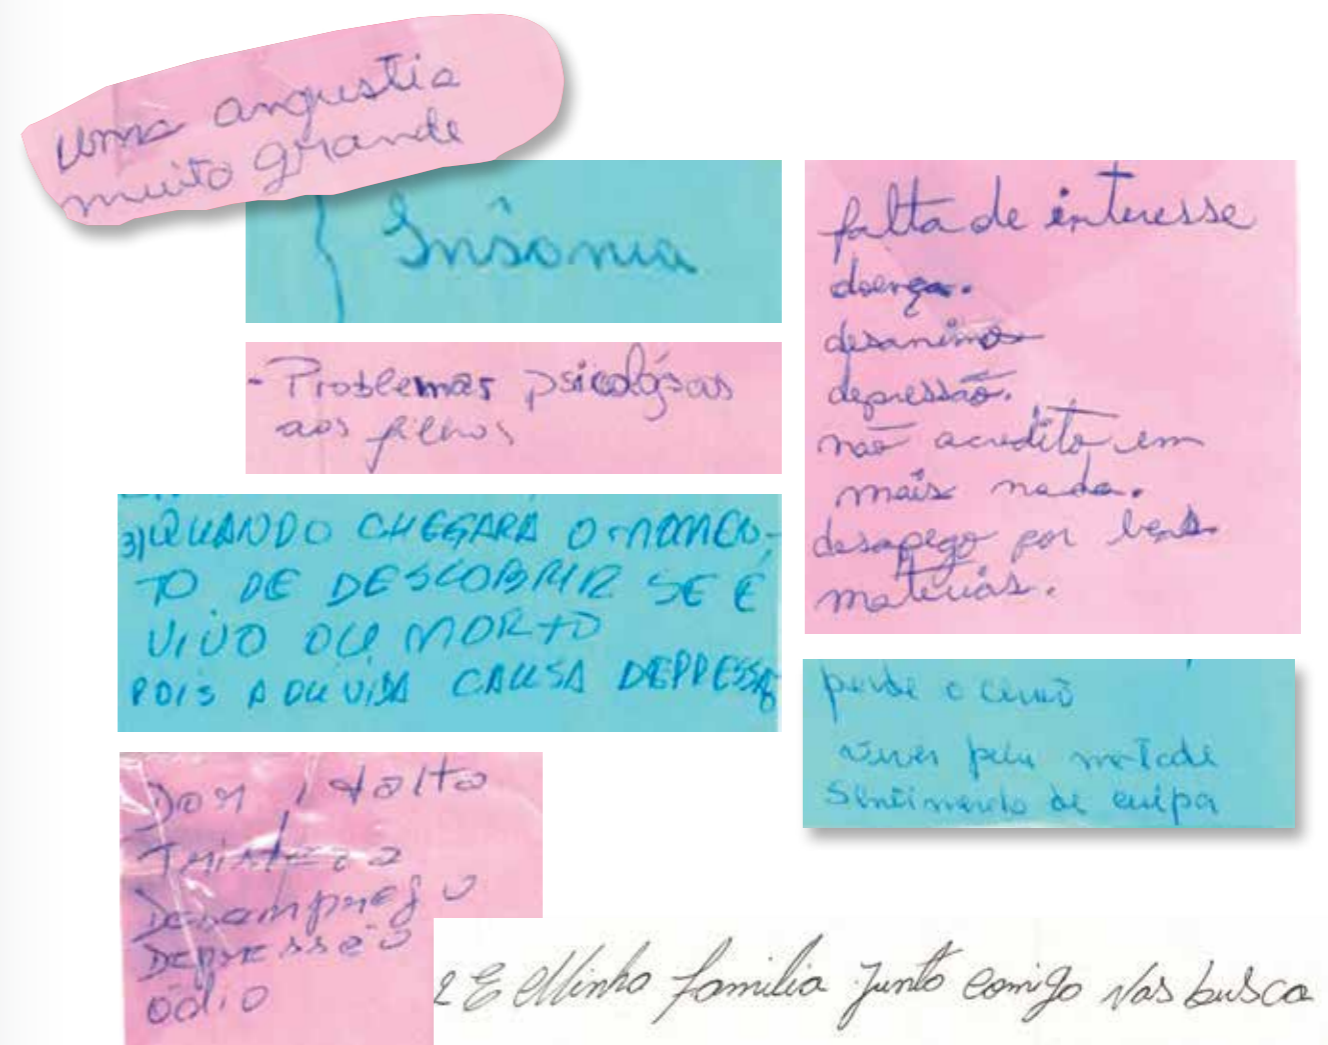 uma angustia
muito grande
Insônia
- Problemas psicológicos
aos filhos
3) QUANDO CHEGARÁ O MOMEN-
TO DE DESCOBRIR SE É
VIVO OU MORTO
POIS A DUVIDA CAUSA DEPRESSÃO
Dor / falta
Tristeza
Desemprego
Depressão
ódio
falta de interesse
doença.
desanimo
depressão.
não acredito em
mais nada.
desapego por bens
materiais.
perde o
viver pela metade
Sentimento de culpa
2 E Minha familia junto comigo nas busca